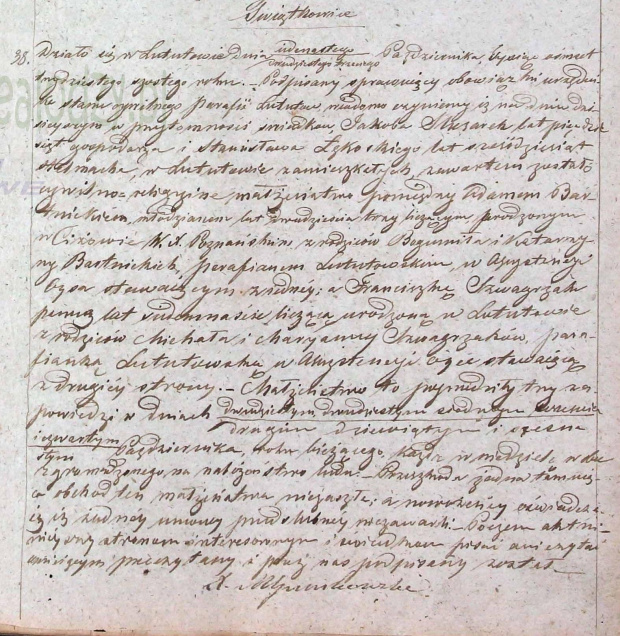 Świątkowice
38. Działo się w Lututowie Dnia jedenastego Października, tysiąc ośmset
dwudziestego trzeciego
trzydziestego szóstego roku. — Podpisany sprawujący obowiązki urzędni
ka stanu cywilnego parafii Lututow, wiadomo czyniemy iż na dniu dzi
sieyszym w przytomności świadków, Jakoba lat pięćdzie
siąt gospodarza i Stanisława lat sześćdziesiąt
stelmacha, w Lututowie zamieszkałych, zawartem zostało
cywilno-religijne małżeństwo pomiędzy Adamem Bart
nickiem, młodzianem lat dwadzieścia trzy liczącym urodzonym
w W. X. Poznańskim, z rodziców Bogumiła i Katarzy
ny Bartnickich, parafianem Lututowskim, w Assystencyi
Ojca stawaiącym z iedney; a Franciszką Szwagrzak
panną lat siedemnaście liczącą urodzoną w Lututowie
z rodziców Michała i Maryanny Szwagrzaków, para
fianką Lututowską w Assystencyi Ojca stawaiącą
z drugiey strony. — Małżeństwo to poprzedziły trzy za
powiedzi w dniach dwudziestym, dwudziestym siódmym Września
drugim dziewiątym i
i czwartym
Października, roku bieżącego, każda w niedzielę w
zgromadzonego na nabożeństwo ludu. — Przeszkoda żadna tamuią
ca obchód ten małżeństwa niezaszła; a nowożeńcy oświadcza
ią iż żadney umowy przedślubney niezawarli. — Poczem akt ni
nieyszy stronom interesowanym i świadkom pisać nieczyta
umieiącym przeczytany i przez nas podpisany został. —